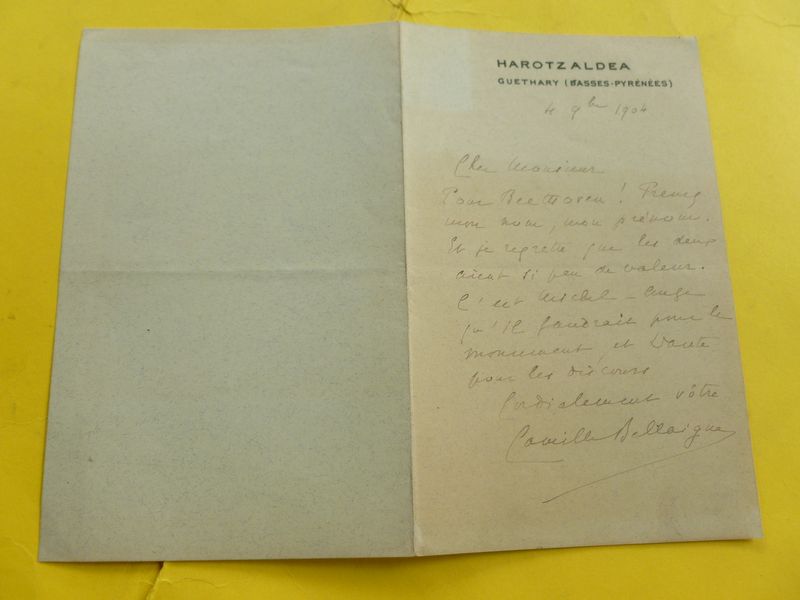 HAROTZALDEA
GUETHARY (BASSES-PYRÉNÉES)
4 9bre 1904
Cher Monsieur
Pour Beethoven ! Prenez
mon nom, mon prénom.
Et je regrette que les deux
aient si peu de valeur.
C'est Michel-Ange
qu'il faudrait pour le
monument, et Dante
pour les discours
Cordialement vôtre
Camille Bellaigue